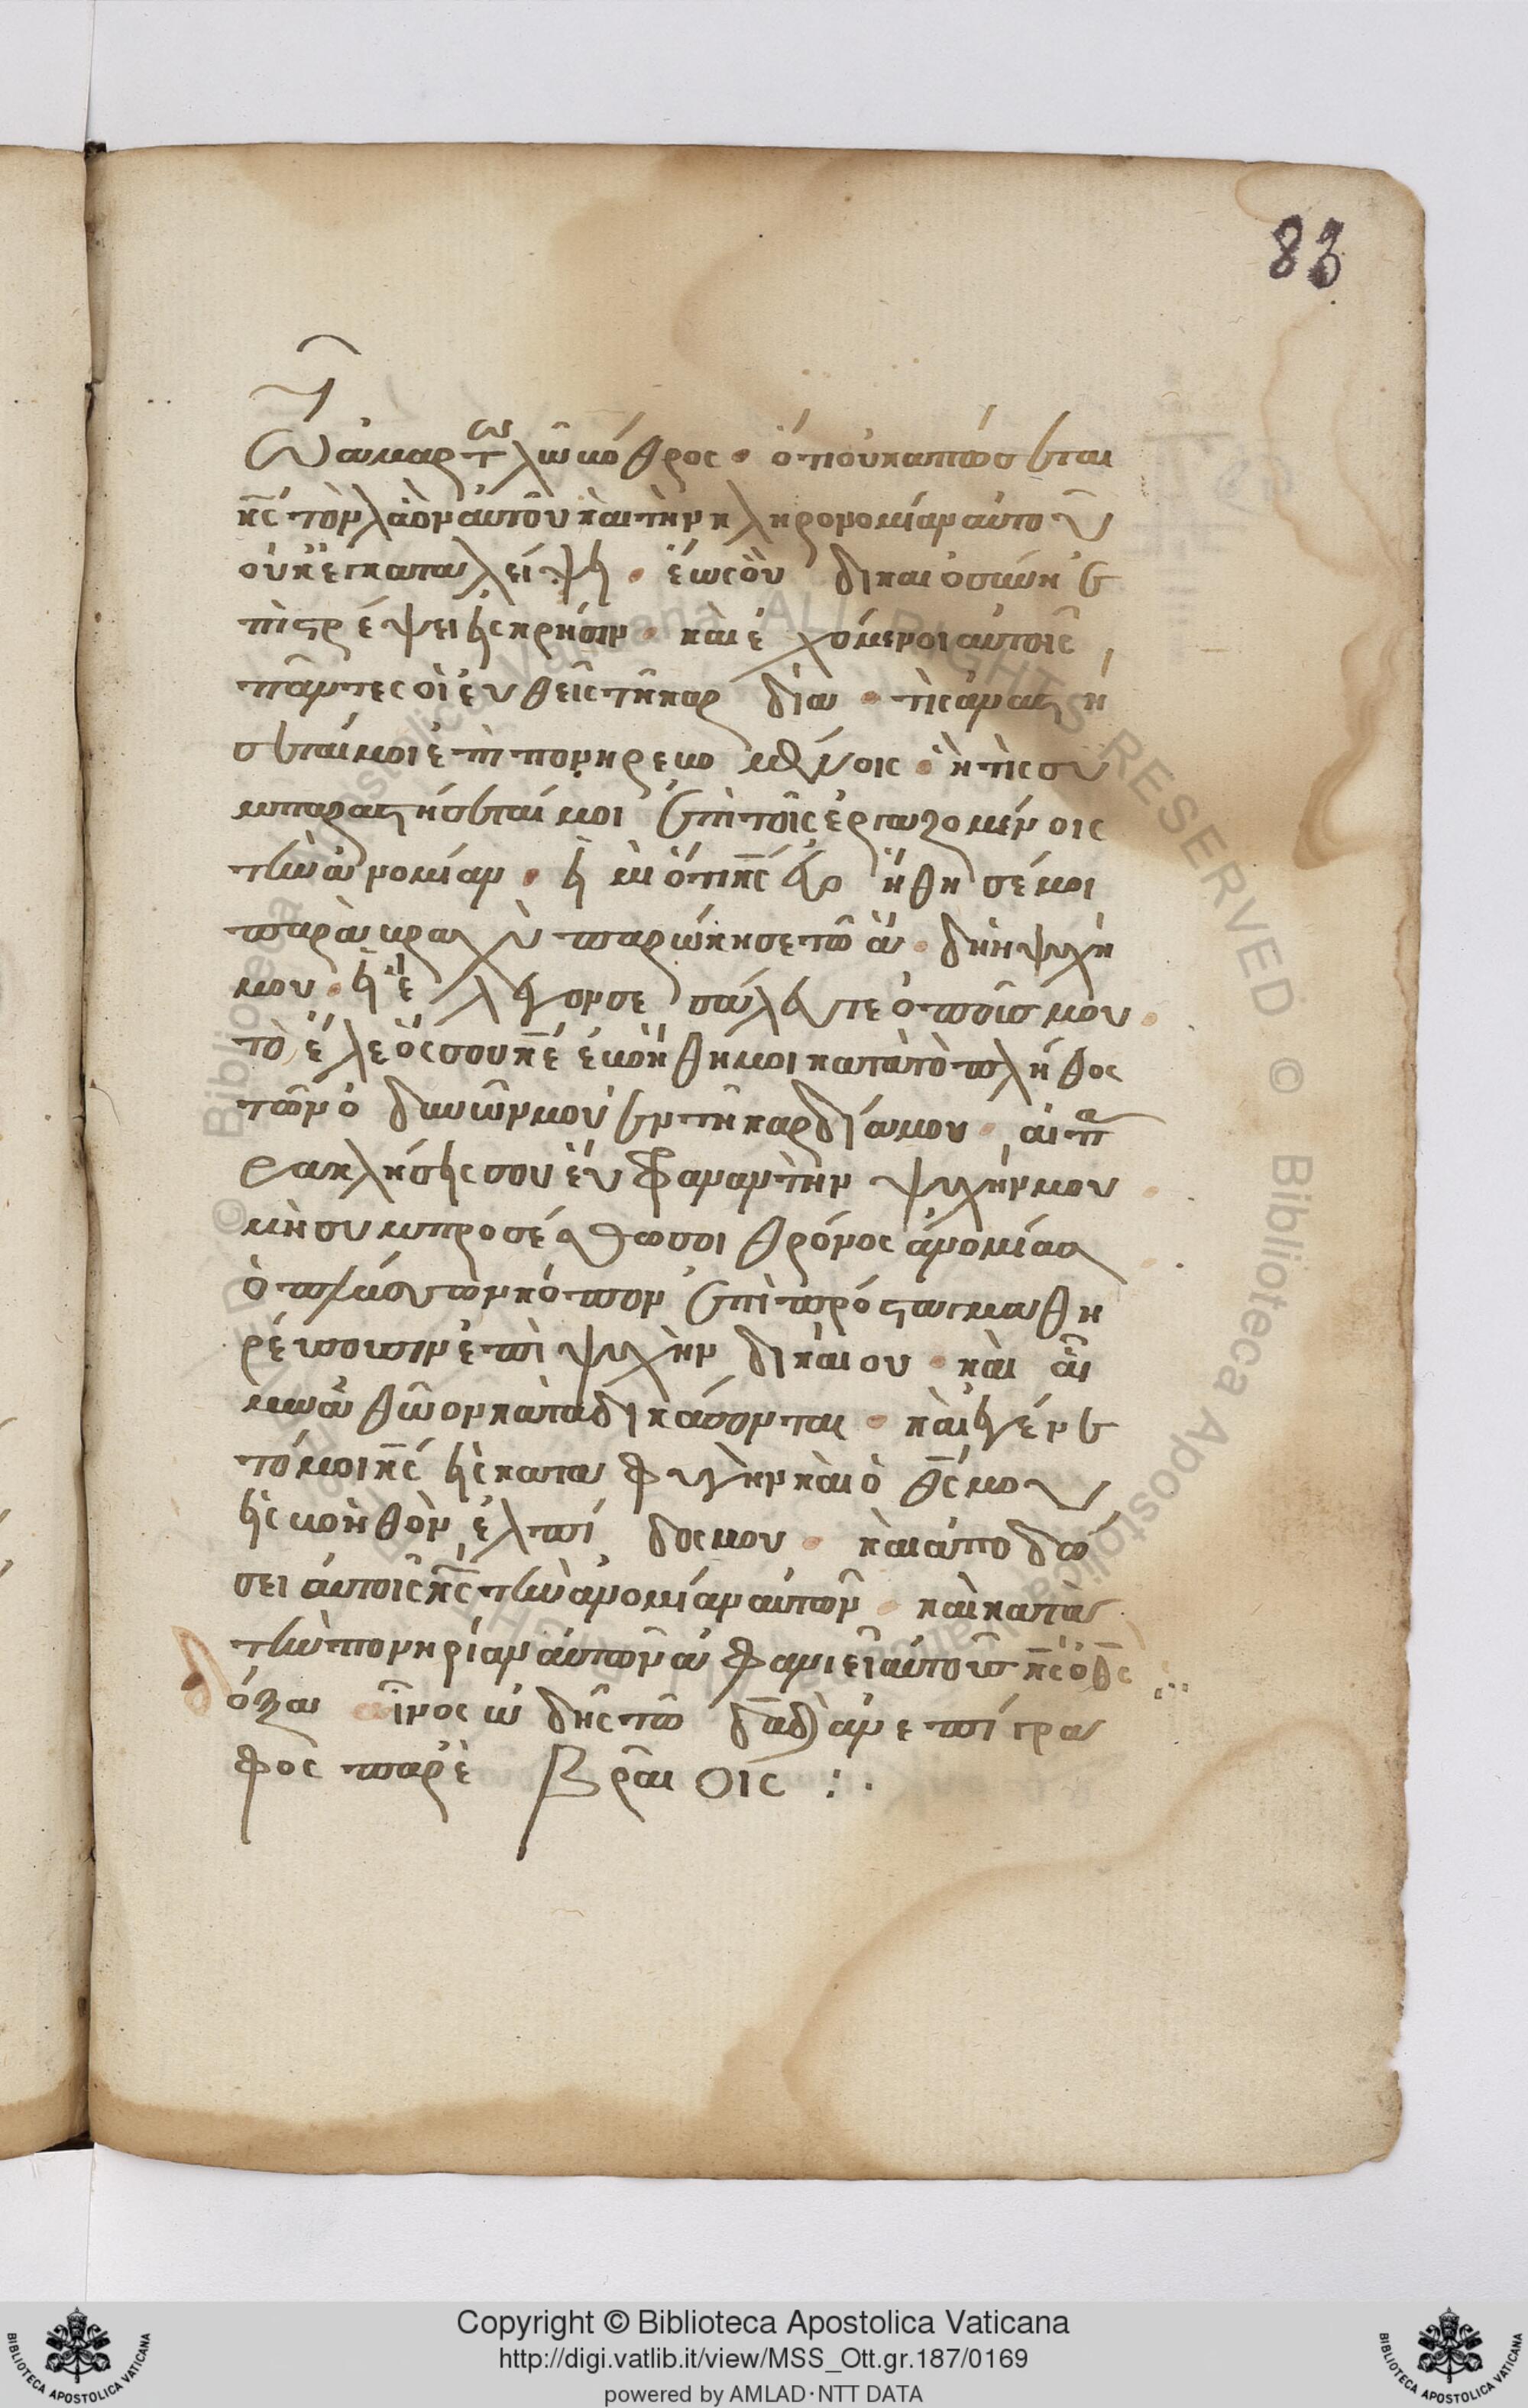 83
τῶ ἁμαρτωλῶ βόθρος· ὅτι οὐκ ἀπώσεται
κ̅ς τὸν λαὸν αὐτοῦ καὶ τὴν κληρονομίαν αὐτοῦ
οὐκ ἐγκαταλείψει· ἕως οὗ δικαιοσύνη ἐ
πιστρέψει εἰς κρίσιν· καὶ ἐχόμενοι αὐτοῖς
πάντες οἱ εὐθεῖς τῆ καρδία· τίς ἀναστή
σεταί μοι ἐπὶ πονηρευομένοις· ἢ τίς συ
μπαραστήσεταί μοι ἐπὶ τοῖς ἐργαζομένοις
τὴν ἀνομίαν· εἰ μὴ ὅτι κ̅ς ἐβοήθησέ μοι
παρὰ βραχὺ παρώκησε τῶ ἅδη ἡ ψυχή
μου· εἰ ἔλεγον σεσάλευται ὁ ποῦς μου·
τὸ ἔλεός σου κ̅ε ἐβοήθη μοι κατὰ τὸ πλῆθος
τῶν ὀδυνῶν μου ἐν τῆ καρδία μου· αἱ πα
ρακλήσεις σου εὔφραναν τὴν ψυχήν μου·
μὴ συμπροσέσθω σοι θρόνος ἀνομίας
ὁ πλάσσων κόπον ἐπὶ προστάγμα θη
ρεύσουσιν ἐπὶ ψυχὴν δικαίου· καὶ αἷ
μα ἀθῶον καταδικάσονται· καὶ ἐγένε
τό μοι κ̅ς εἰς καταφυγὴν καὶ ὁ θ̅ς μου
εἰς βοηθὸν ἐλπίδος μου· καὶ ἀποδώ
σει αὐτοῖς κ̅ς τὴν ἀνομίαν αὐτῶν· καὶ κατὰ
τὴν πονηρίαν αὐτῶν ἀφανιεῖ αὐτοὺς κ̅ς ὁ θ̅ς
δόξα αἶνος ὠδῆς τῶ δα̅δ ἀνεπίγρα
φος παρ' ἑβραίοις :·
Copyright © Biblioteca Apostolica Vaticana
http://digi.vatlib.it/view/MSS_Ott.gr.187/0169
powered by AMLAD·NTT DATA